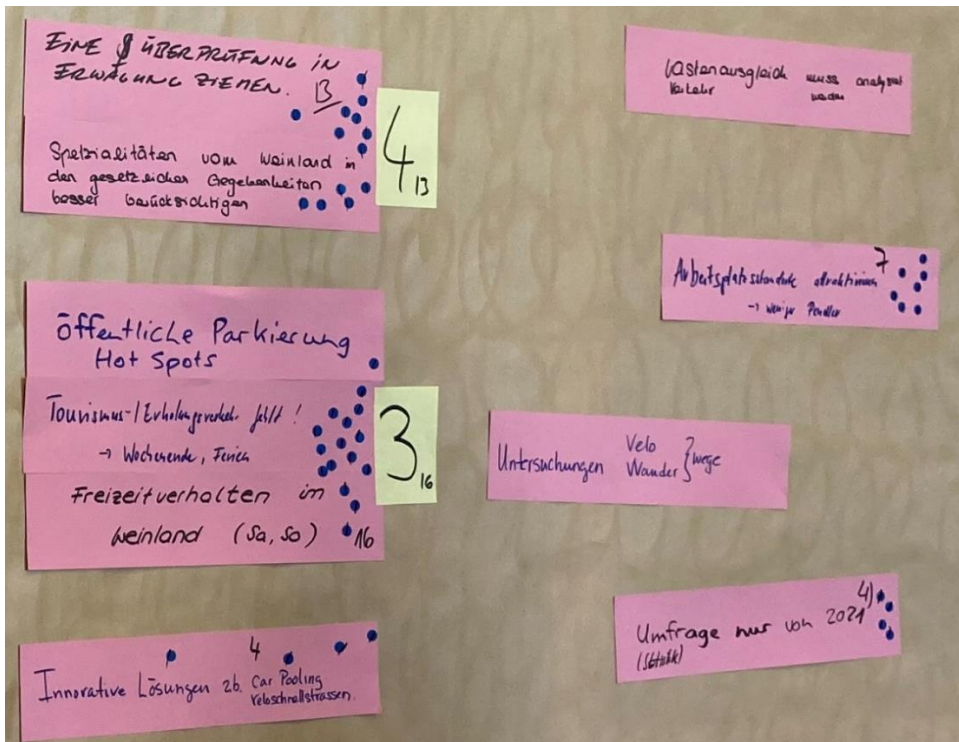 EINE § ÜBERPRÜFUNG IN
ERWÄGUNG ZIEHEN.
13
Spetzialitäten vom Weinland in
den gesetzlichen Gegebenheiten
besser berücksichtigen
4
13
öffentliche Parkierung
Hot Spots
Tourismus-/Erholungsverkehr fehlt!
→ Wochenende, Ferien
Freizeitverhalten im
Weinland (Sa, So)
16
3
16
4
Innovative Lösungen zb. Car Pooling
Veloschnellstrassen.
Lastenausgleich muss analysiert
Verkehr werden
7
Arbeitsplatzstandorte attraktivieren
→ weniger Pendler
Untersuchungen Velo
Wander } wege
4)
Umfrage nur von 2021
(Statistik)